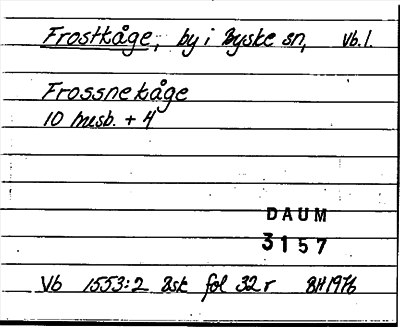 Frostkåge, by i Byske sn, Vb.l.
Frossnekåge
10 mesb. + 4
DAUM
3157
Vb 1553:2 Bsk fol 32r BH1976